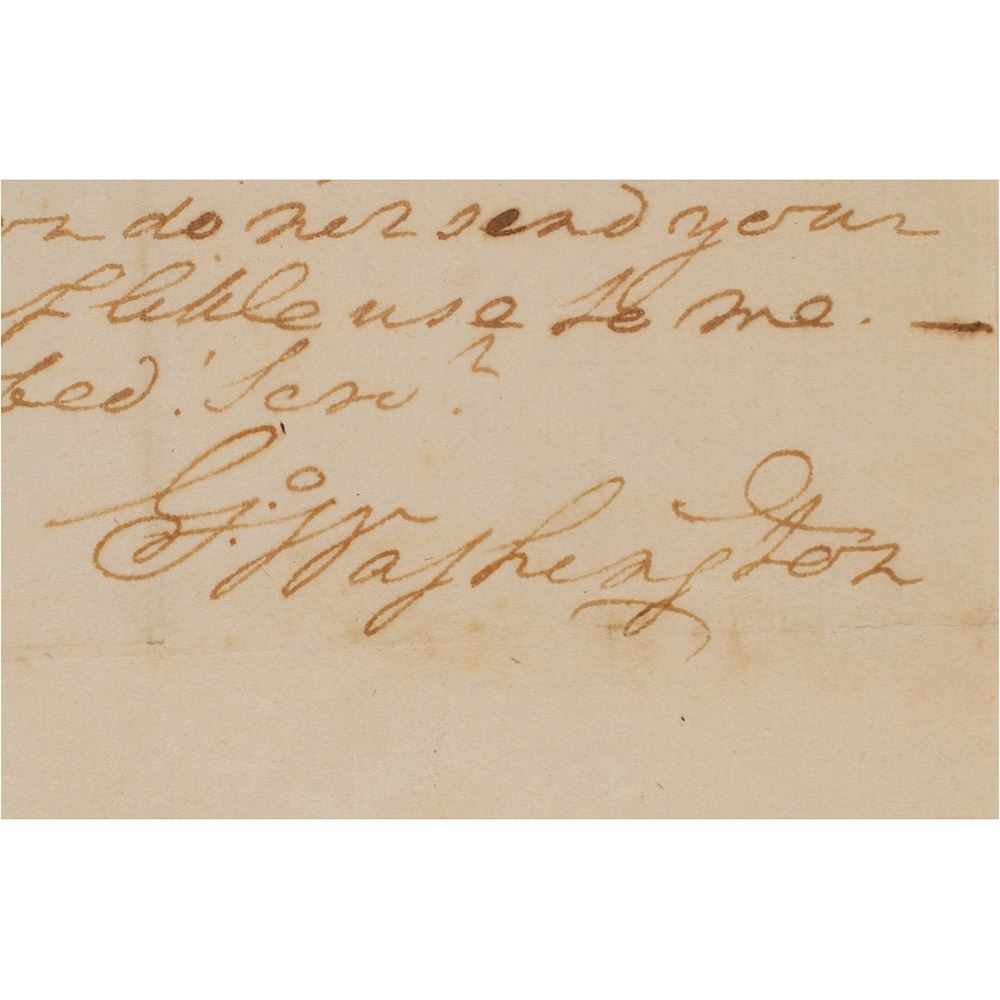 do not send your
little use to me. —
bed. Serv.t
G:o Washington